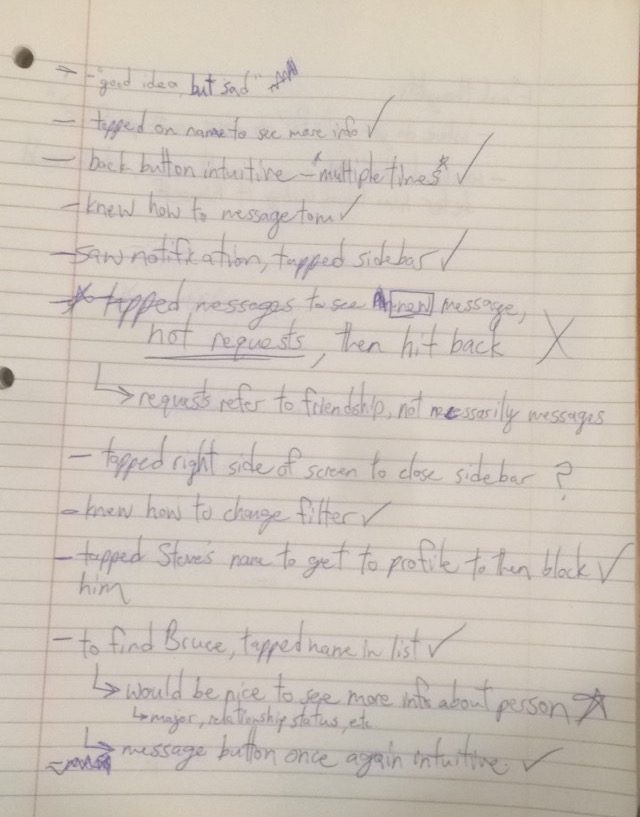 - "good idea, but sad"
- tapped on name to see more info ✓
- back button intuitive - *multiple times* ✓
- knew how to message tom ✓
- saw notification, tapped sidebar ✓
- tapped messages to see new message,
not requests, then hit back X
↳ requests refer to friendship, not necessarily messages
- tapped right side of screen to close sidebar ?
- knew how to change filter ✓
- tapped Steve's name to get to profile to then block ✓
him
- to find Bruce, tapped name in list ✓
↳ would be nice to see more info about person ☆
↳ major, relationship status, etc
↳ message button once again intuitive. ✓